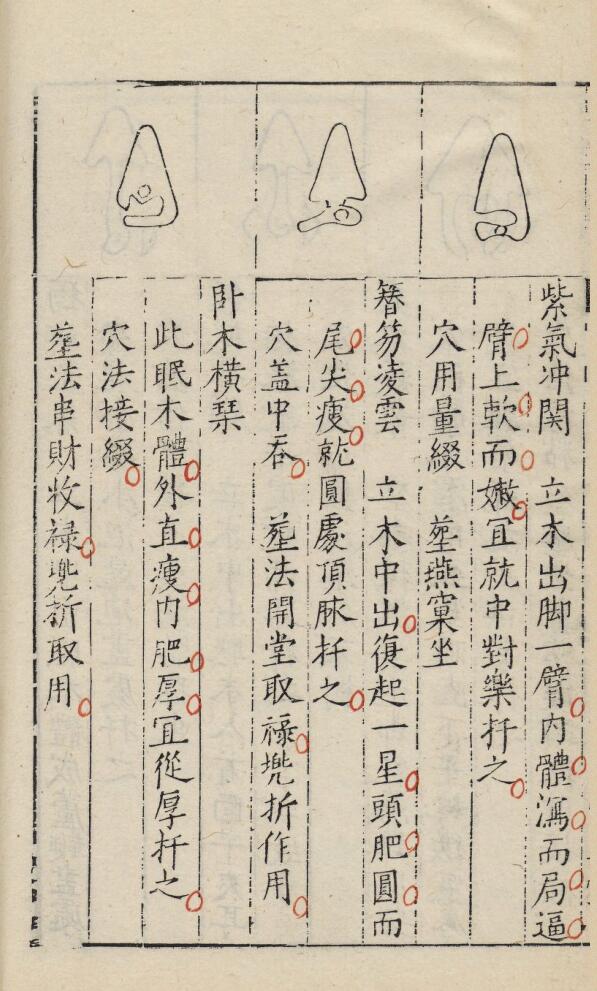 紫氣冲関　立木出脚一臂内體瀉而局逼
臂上軟而嫩冝就中對樂扦之
穴用量綴　塟燕窠坐
簪笏凌雲　立木中出復起一星頭肥圓而
尾尖瘦就圓處頂脉扦之
穴盖中吞　塟法開堂取禄兠折作用
卧木橫琹
此眠木體外直瘦内肥厚冝從厚扦之
穴法接綴
塟法串財牧禄兠折取用